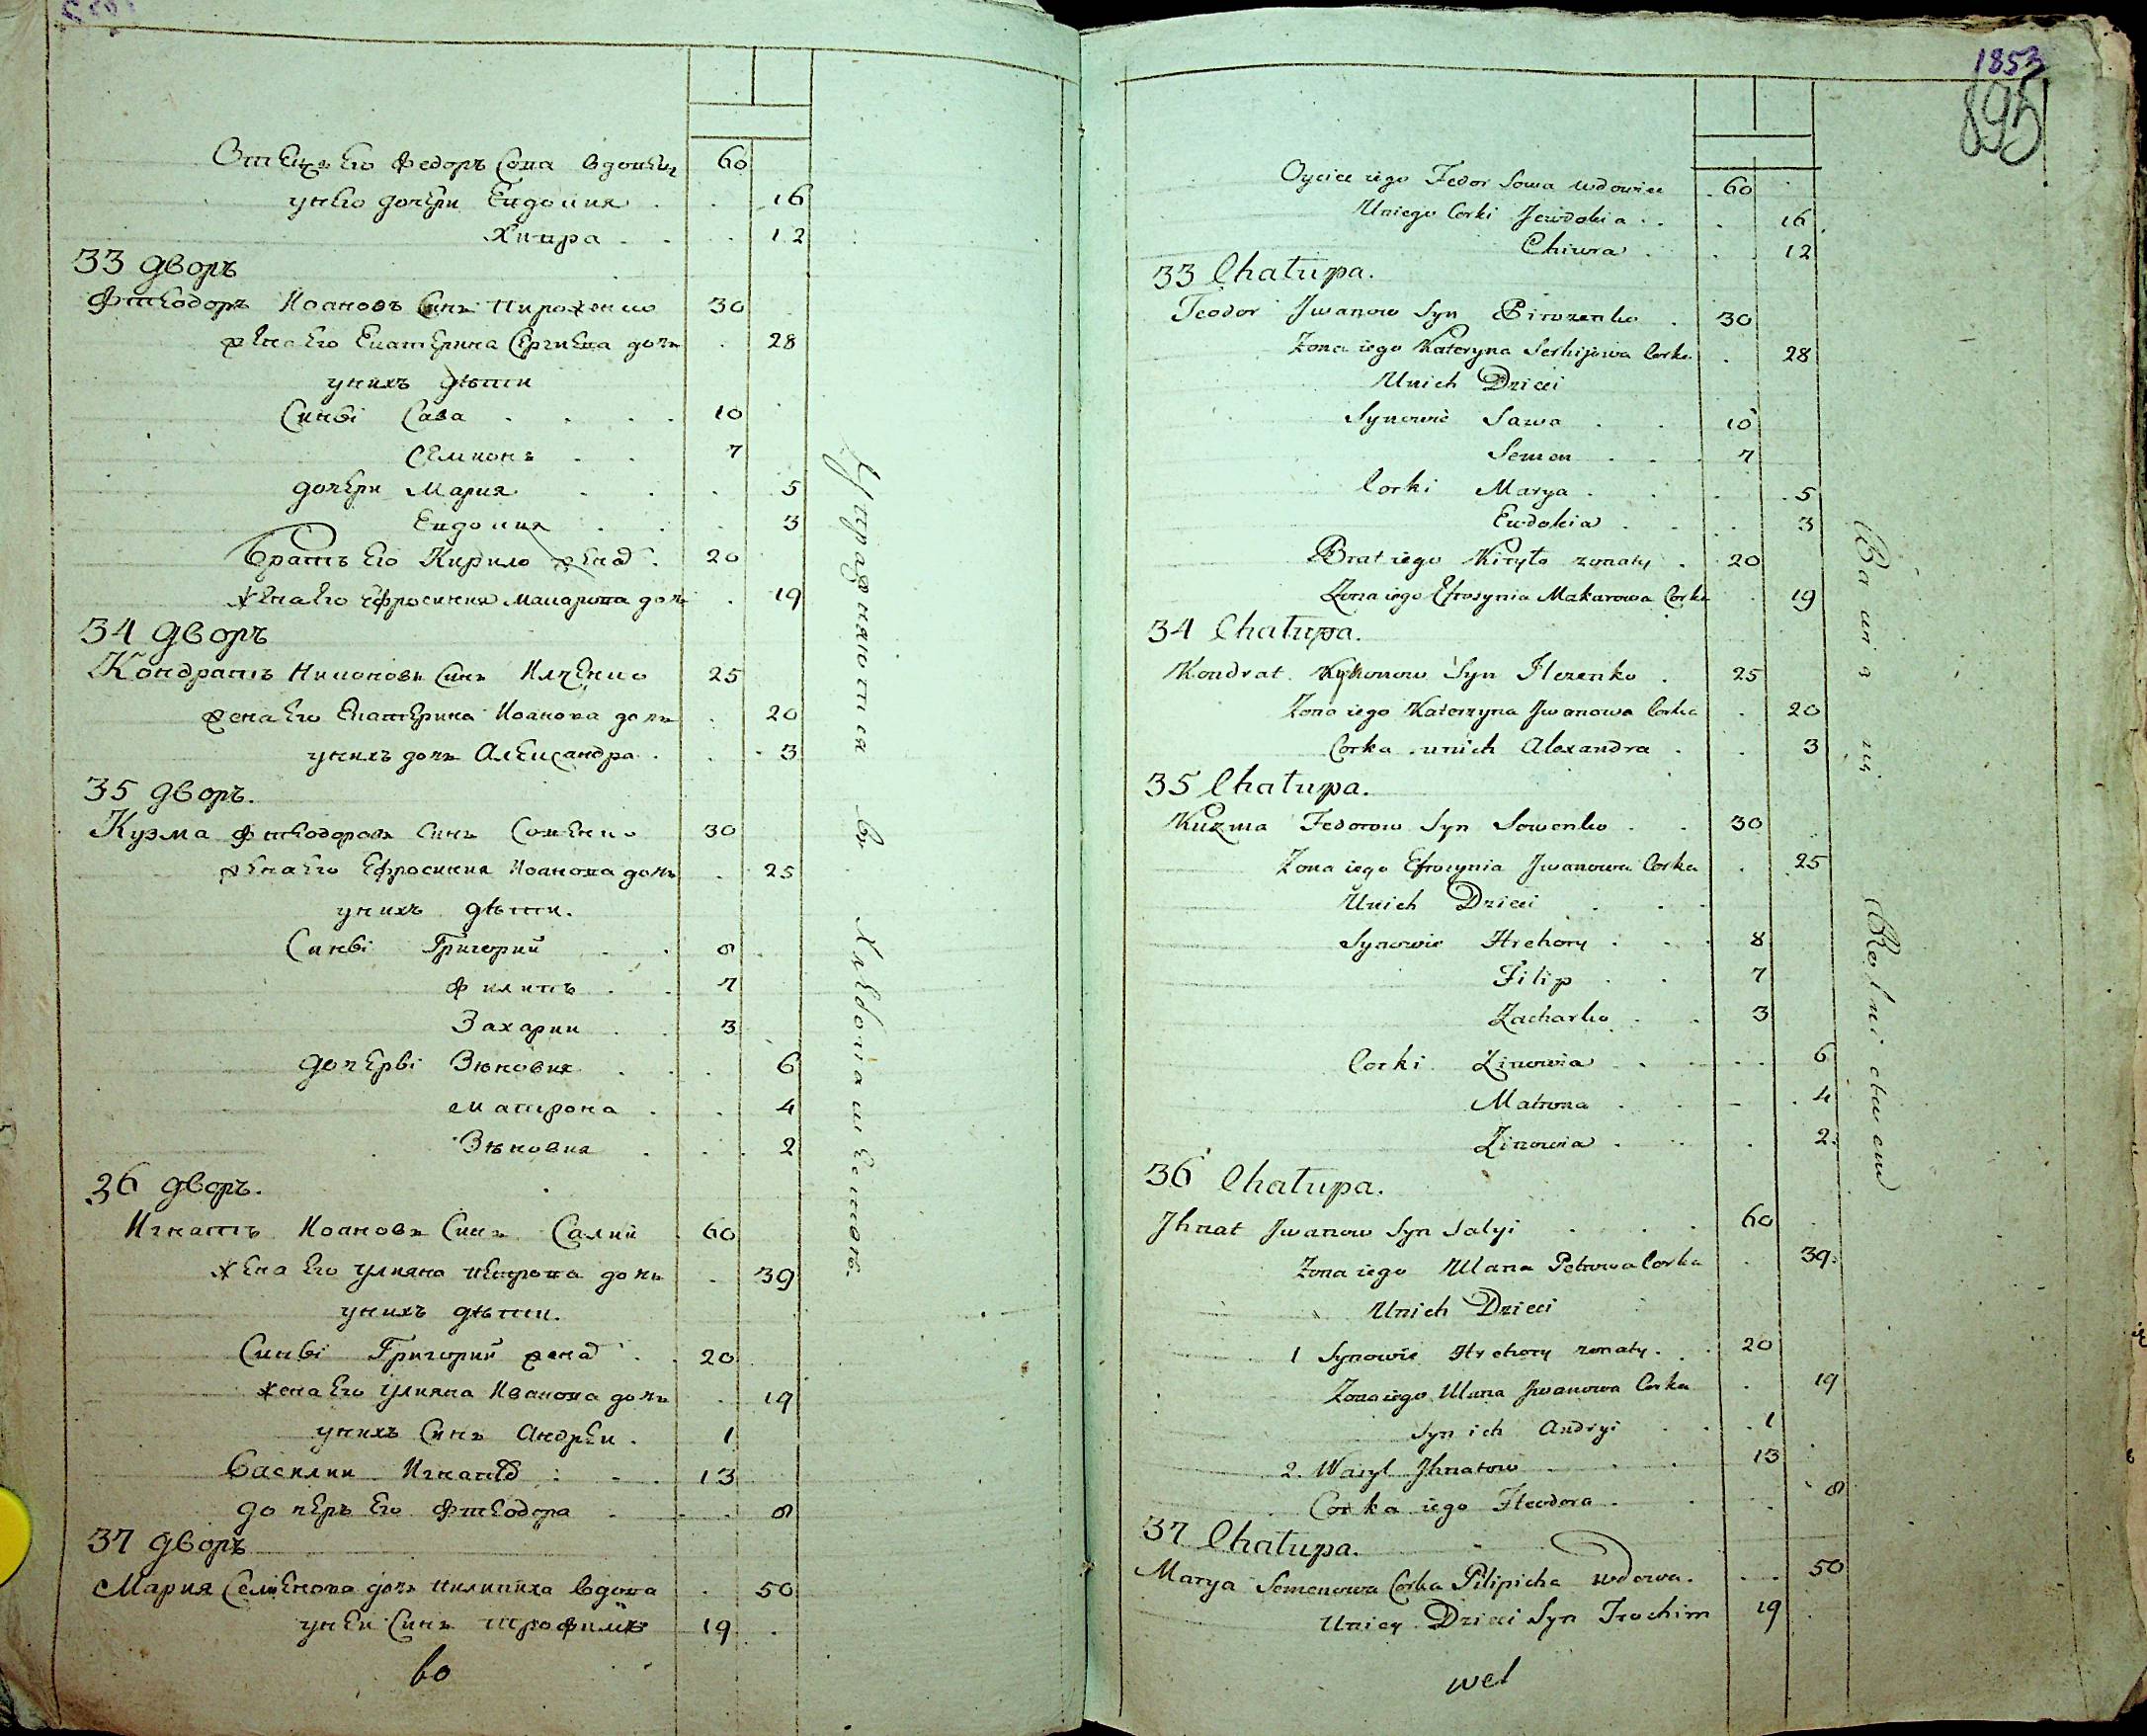 Отецъ его Федоръ Сова вдовец 60
у него дочери Евдокия . . 16
Хивра . . . 12
33 дворъ
Фтеодоръ Иоановъ Синъ Пироженко 30
жена его Екатерина Сергиева дочь . 28
у нихъ дѣти
Синві Сава . . . . 10
Семионъ . . 7
дочери Мария . . . 5
Евдокия . . . 3
Братъ его Кирило женад . 20
жена его Ефросиния Макарова дочь . 19
34 дворъ
Кондратъ Никоновъ Синъ Илченко 25
жена его Екатерина Иоанова дочь . 20
у нихъ дочь Александра . . . 3
35 дворъ.
Кузма Фтеодоровъ Синъ Совенко 30
жена его Ефросиния Иоанова дочь . 25
у нихъ дѣти.
Синві Григорий . . 8
Филипъ . . 7
Захарии . . 3
дочерві Зѣновия . . . 6
Матрона . . 4
Зѣновия . . . 2
36 дворъ.
Игнатъ Иоановъ Синъ Салий . 60
жена его Улияна Петрова дочь . 39
у нихъ дѣти.
Синві Григорий женад . . 20
жена его Улияна Иванова дочь . 19
у нихъ Синъ Андреи . 1
Василии Игнатѡ : . . 13
дочеръ его Фтеодора . . . 8
37 дворъ
Мария Семенова дочь Пилипиха вдова . 50
у неи Синъ Трофимъ 19 .
во
Упражняются въ Хлебопашестве.
1853
895
Oyciec iego Fedor Sowa wdowiec . 60
U niego Corki Jewdokia . . . 16
Chiwra . . . 12
33 Chałupa.
Teodor Jwanow Syn Pirozenko . 30
Zona iego Kateryna Serhijowa Corka . 28
U nich Dzieci
Synowie Sawa . . 10
Semen . . . 7
Corki Marya . . . 5
Ewdokia . . . 3
Brat iego Kiryło zonaty . 20
Zona iego Efrosynia Makarowa Corka . 19
34 Chałupa.
Kondrat Nykonow Syn Ilczenko . 25
Zona iego Katerzyna Jwanowa Corka . 20
Corka u nich Alexandra . . 3
35 Chałupa.
Kuzma Fedorow Syn Sowenko . . 30
Zona iego Efrosynia Jwanowa Corka . 25
U nich Dzieci . . .
Synowie Hrehory . . . 8
Filip . . 7
Zacharko . . 3
Corki Zinowia . . . . 6
Matrona . . - . 4
Zinowia . . . 2.
36 Chałupa.
Jhnat Jwanow Syn Salyi . . . 60
Zona iego Ulana Petrowa Corka . 39.
U nich Dzieci
1 Synowie Hrehory zonaty . . 20
Zona iego Ulana Jwanowa Corka . 19
Syn ich Andryi . . . 1
2. Wasyl Jhnatow . . . 13
Corka iego Fteodora . . . 8
37 Chałupa.
Marya Semenowa Corka Pilipicha wdowa . . . 50
U niey Dzieci Syn Trochim 19 .
wel
Bawią się Rolnictwem